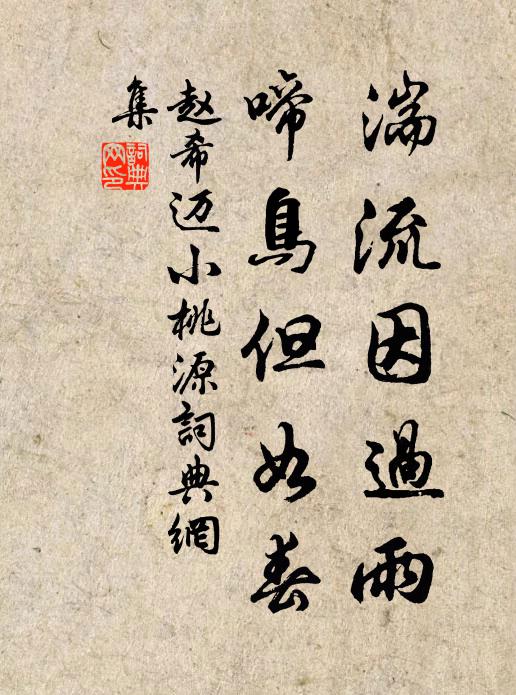 湍流因過雨
啼鳥但如春
赵希迈小桃源詞典網
集
詞典網印